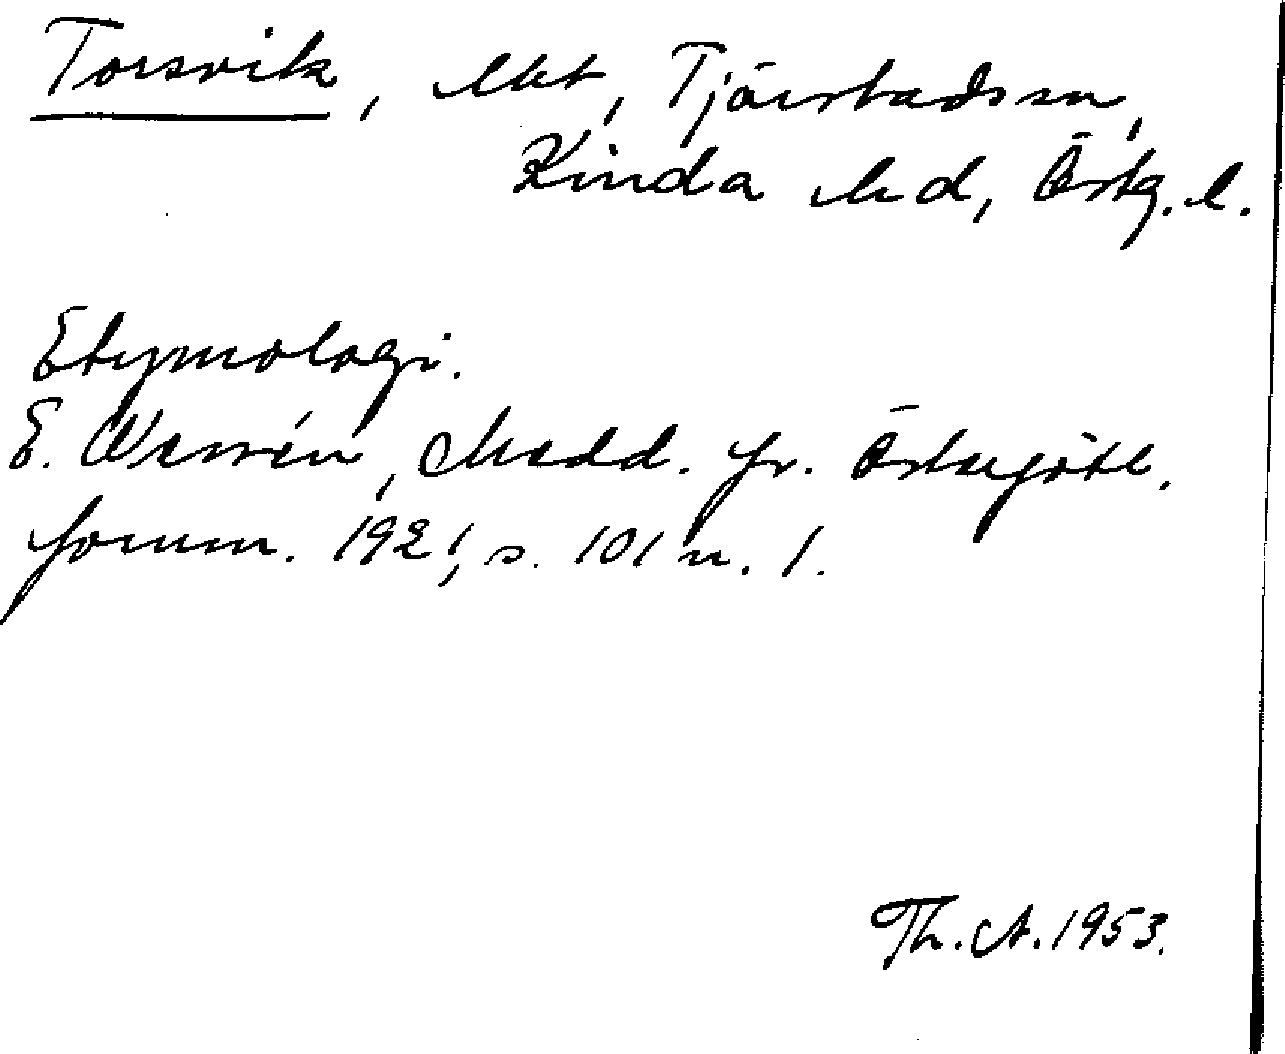 Torsvik, hkt, Tjärstads sn,
Kinda hd, Östg. l.
Etymologi.
E. Wessén, Medd. fr. Östergötl.
fornm. 1921, s. 101 n. 1.
Th. A. 1953.